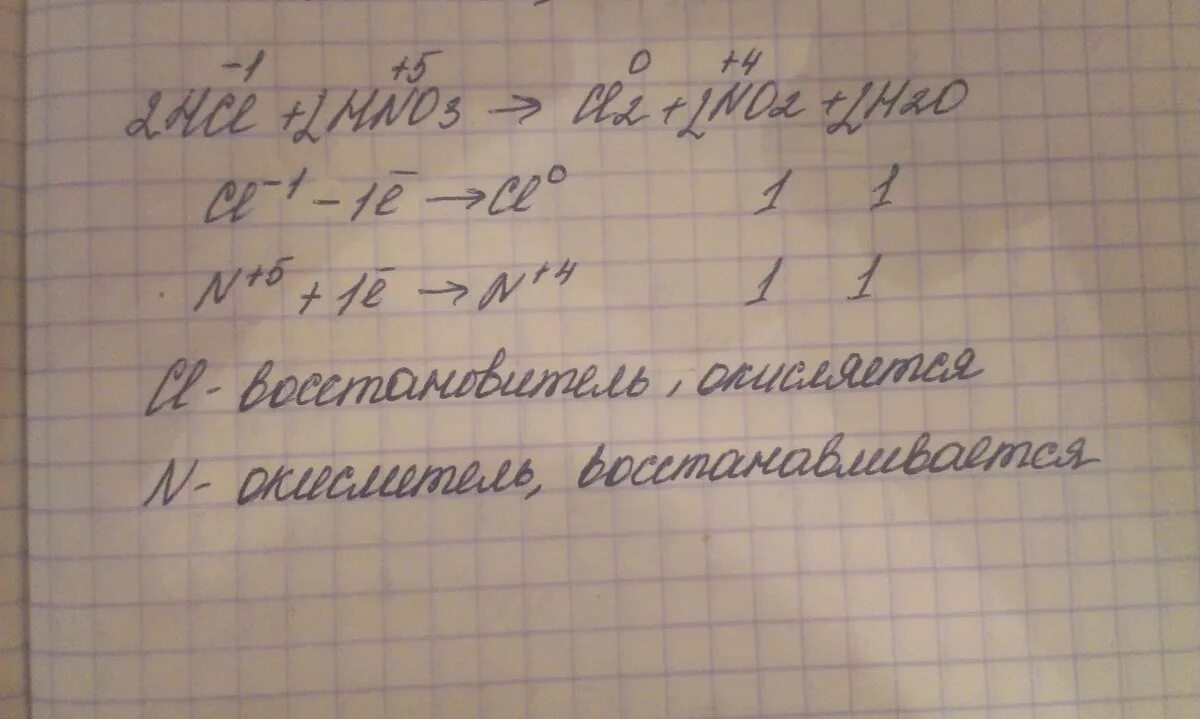 -1 +5 0 +4
2HCl + 2HNO3 → Cl2 + 2NO2 + 2H2O
Cl⁻¹ - 1ē → Cl⁰ 1 1
N⁺⁵ + 1ē → N⁺⁴ 1 1
Cl - восстановитель, окисляется
N - окислитель, восстанавливается